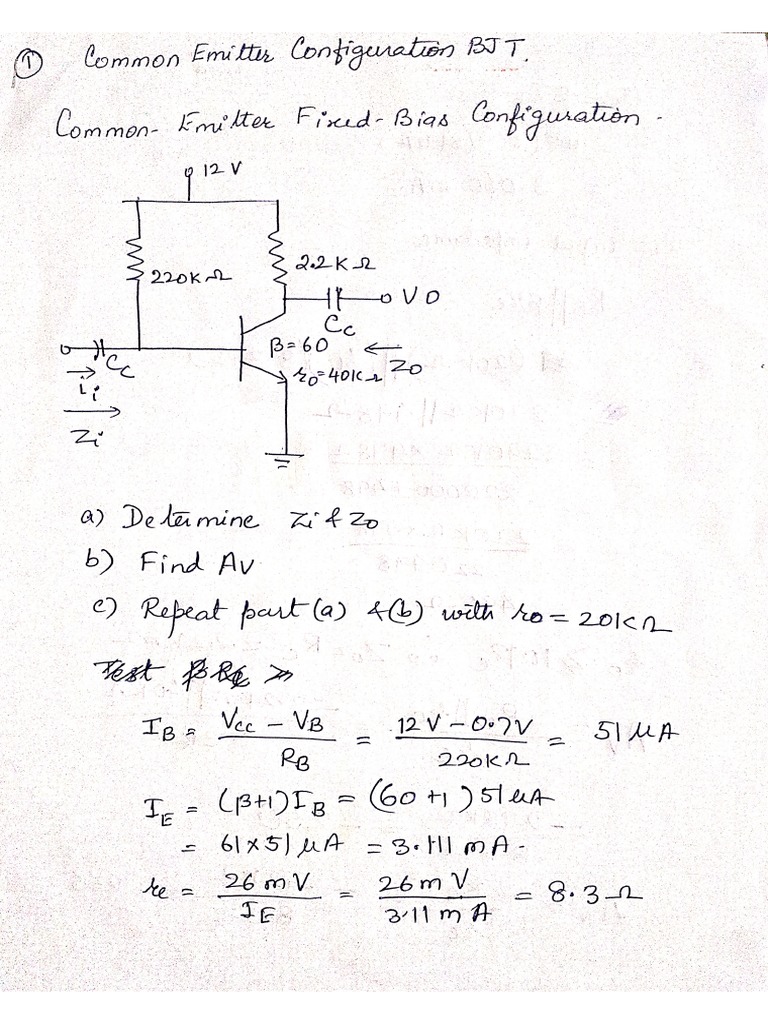 ① Common Emitter Configuration BJT.
Common-Emitter Fixed-Bias Configuration.
12 V
220K Ω
2.2 K Ω
V O
Cc
β=60
ro=40K Ω
Zo
Cc
Ii
Zi
a) Determine Zi & Zo
b) Find Av
c) Repeat part (a) & (b) with ro = 20KΩ
Test
IB = Vcc - VB / RB = 12 V - 0.7V / 220KΩ = 51 μA
IE = (β+1) IB = (60 +1) 51 μA
= 61 x 51 μA = 3.111 mA.
re = 26 mV / IE = 26 m V / 3.11 m A = 8.3 Ω